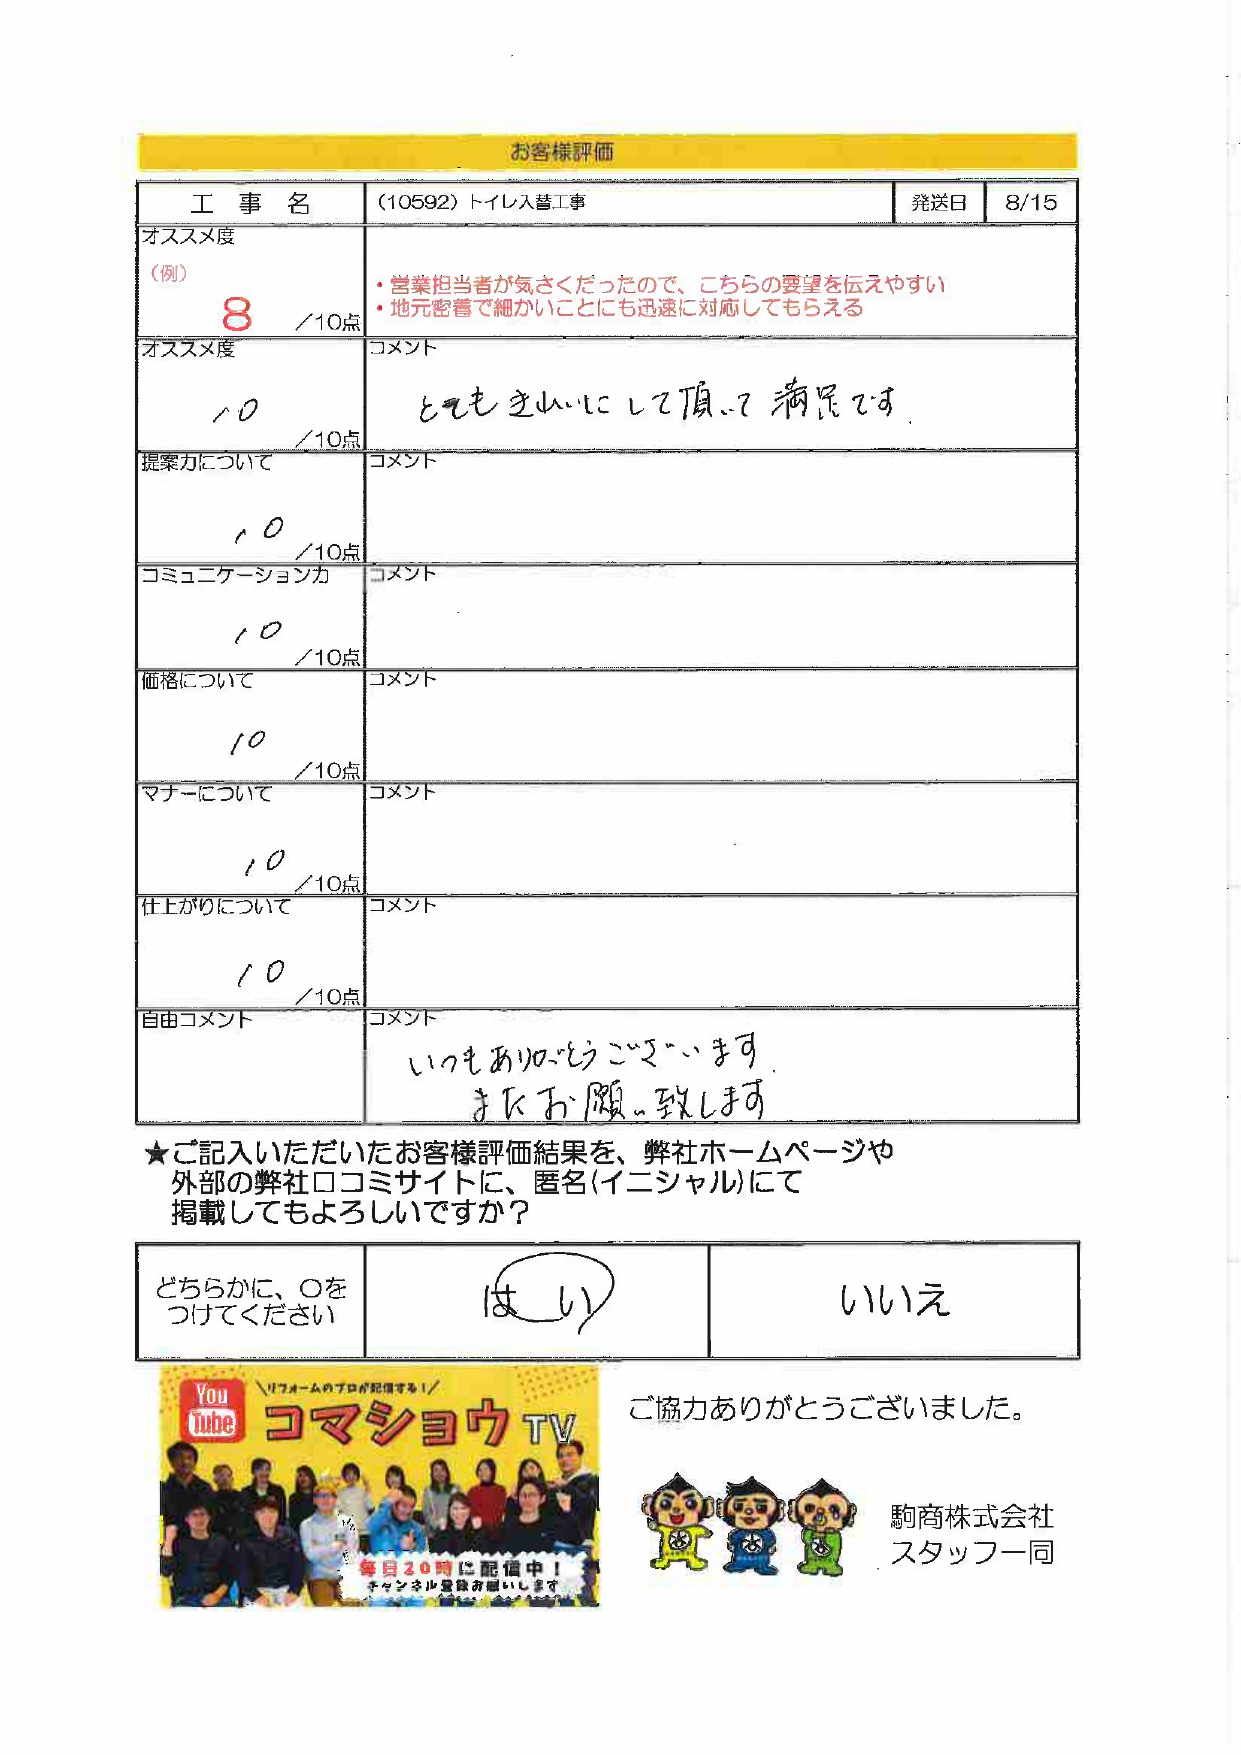 お客様評価
工事名 (10592) トイレ入替工事 発送日 8/15
オススメ度
(例)
8 /10点
・営業担当者が気さくだったので、こちらの要望を伝えやすい
・地元密着で細かいことにも迅速に対応してもらえる
オススメ度 コメント
10 /10点
とてもきれいにして頂いて満足です
提案力について コメント
10 /10点
コミュニケーション力 コメント
10 /10点
価格について コメント
10 /10点
マナーについて コメント
10 /10点
仕上がりについて コメント
10 /10点
自由コメント コメント
いつもありがとうございます
またお願い致します
★ご記入いただいたお客様評価結果を、弊社ホームページや
外部の弊社口コミサイトに、匿名(イニシャル)にて
掲載してもよろしいですか？
どちらかに、○を
つけてください
はい
いいえ
You Tube
\リフォームのプロが配信する！/
コマショウTV
毎日20時に配信中！
チャンネル登録お願いします
ご協力ありがとうございました。
駒商株式会社
スタッフ一同